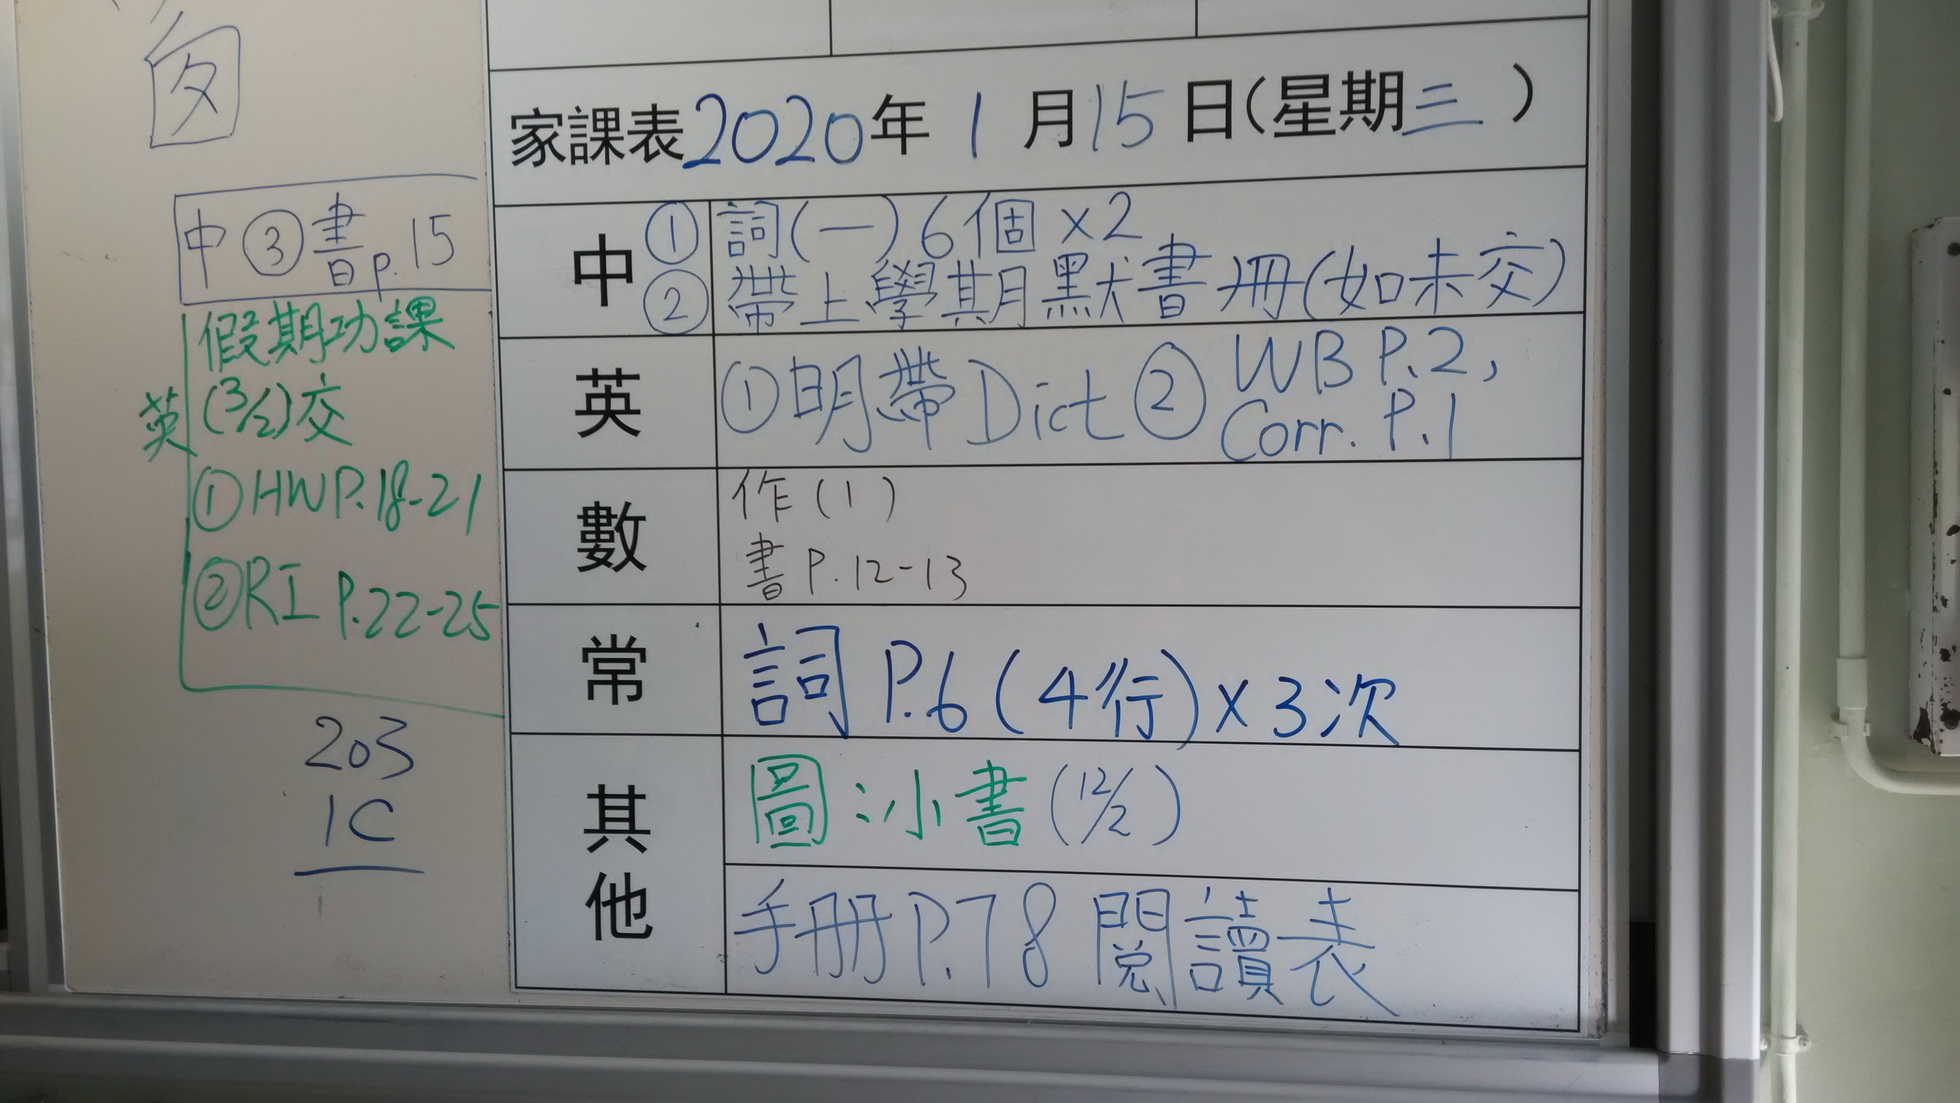 家課表2020年1月15日(星期三)
中 ① 詞(一)6個×2
② 帶上學期默書冊(如未交)
中③書p.15
英 ①明帶Dict ② WB P.2,
Corr. P.1
英 假期功課
(3/2)交
①HW P.18-21
②RI P.22-25
數 作(1)
書P.12-13
常 詞P.6(4行)×3次
其他 圖:小書(12/2)
手冊P.78 閱讀表
203
1C